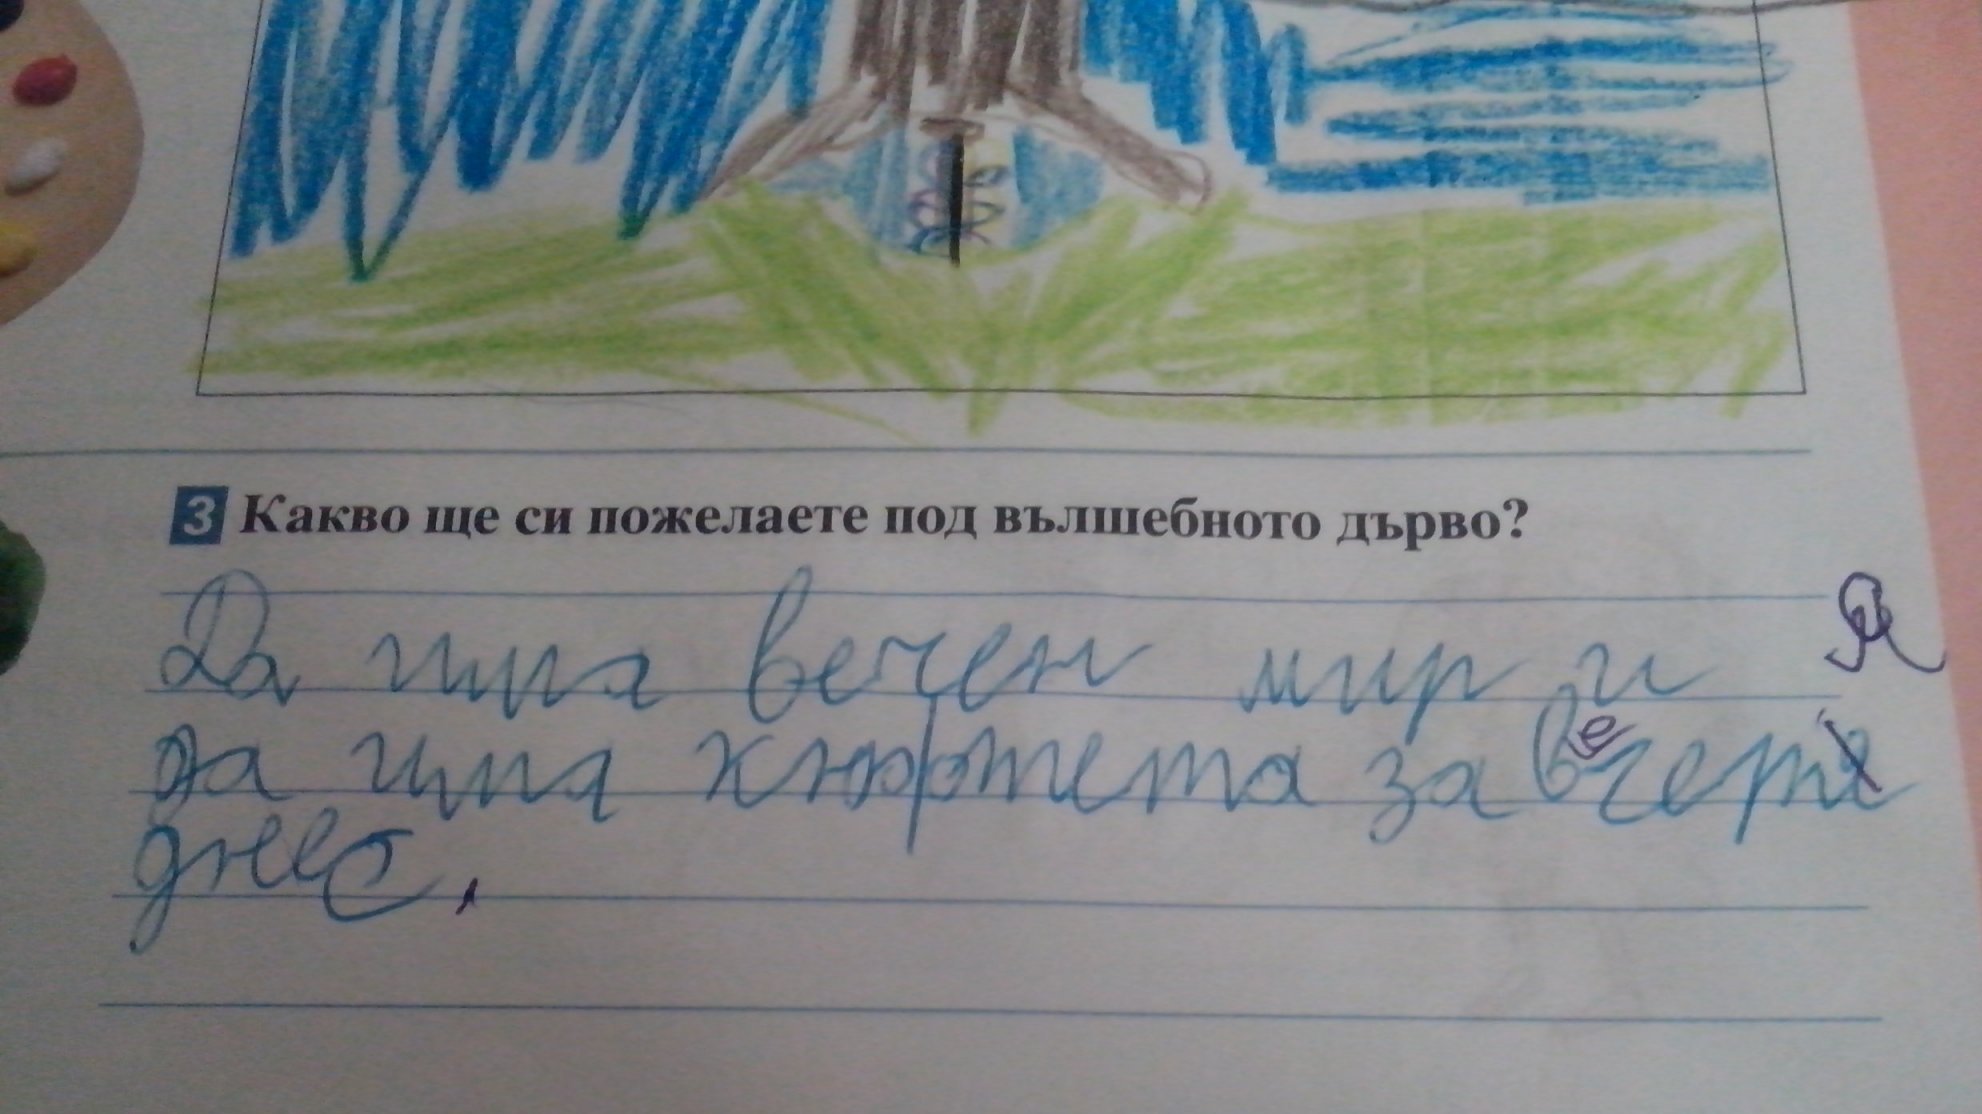 3 Какво ще си пожелаете под вълшебното дърво?
Да има вечен мир и
да има кюфтета за вечеря
днес.